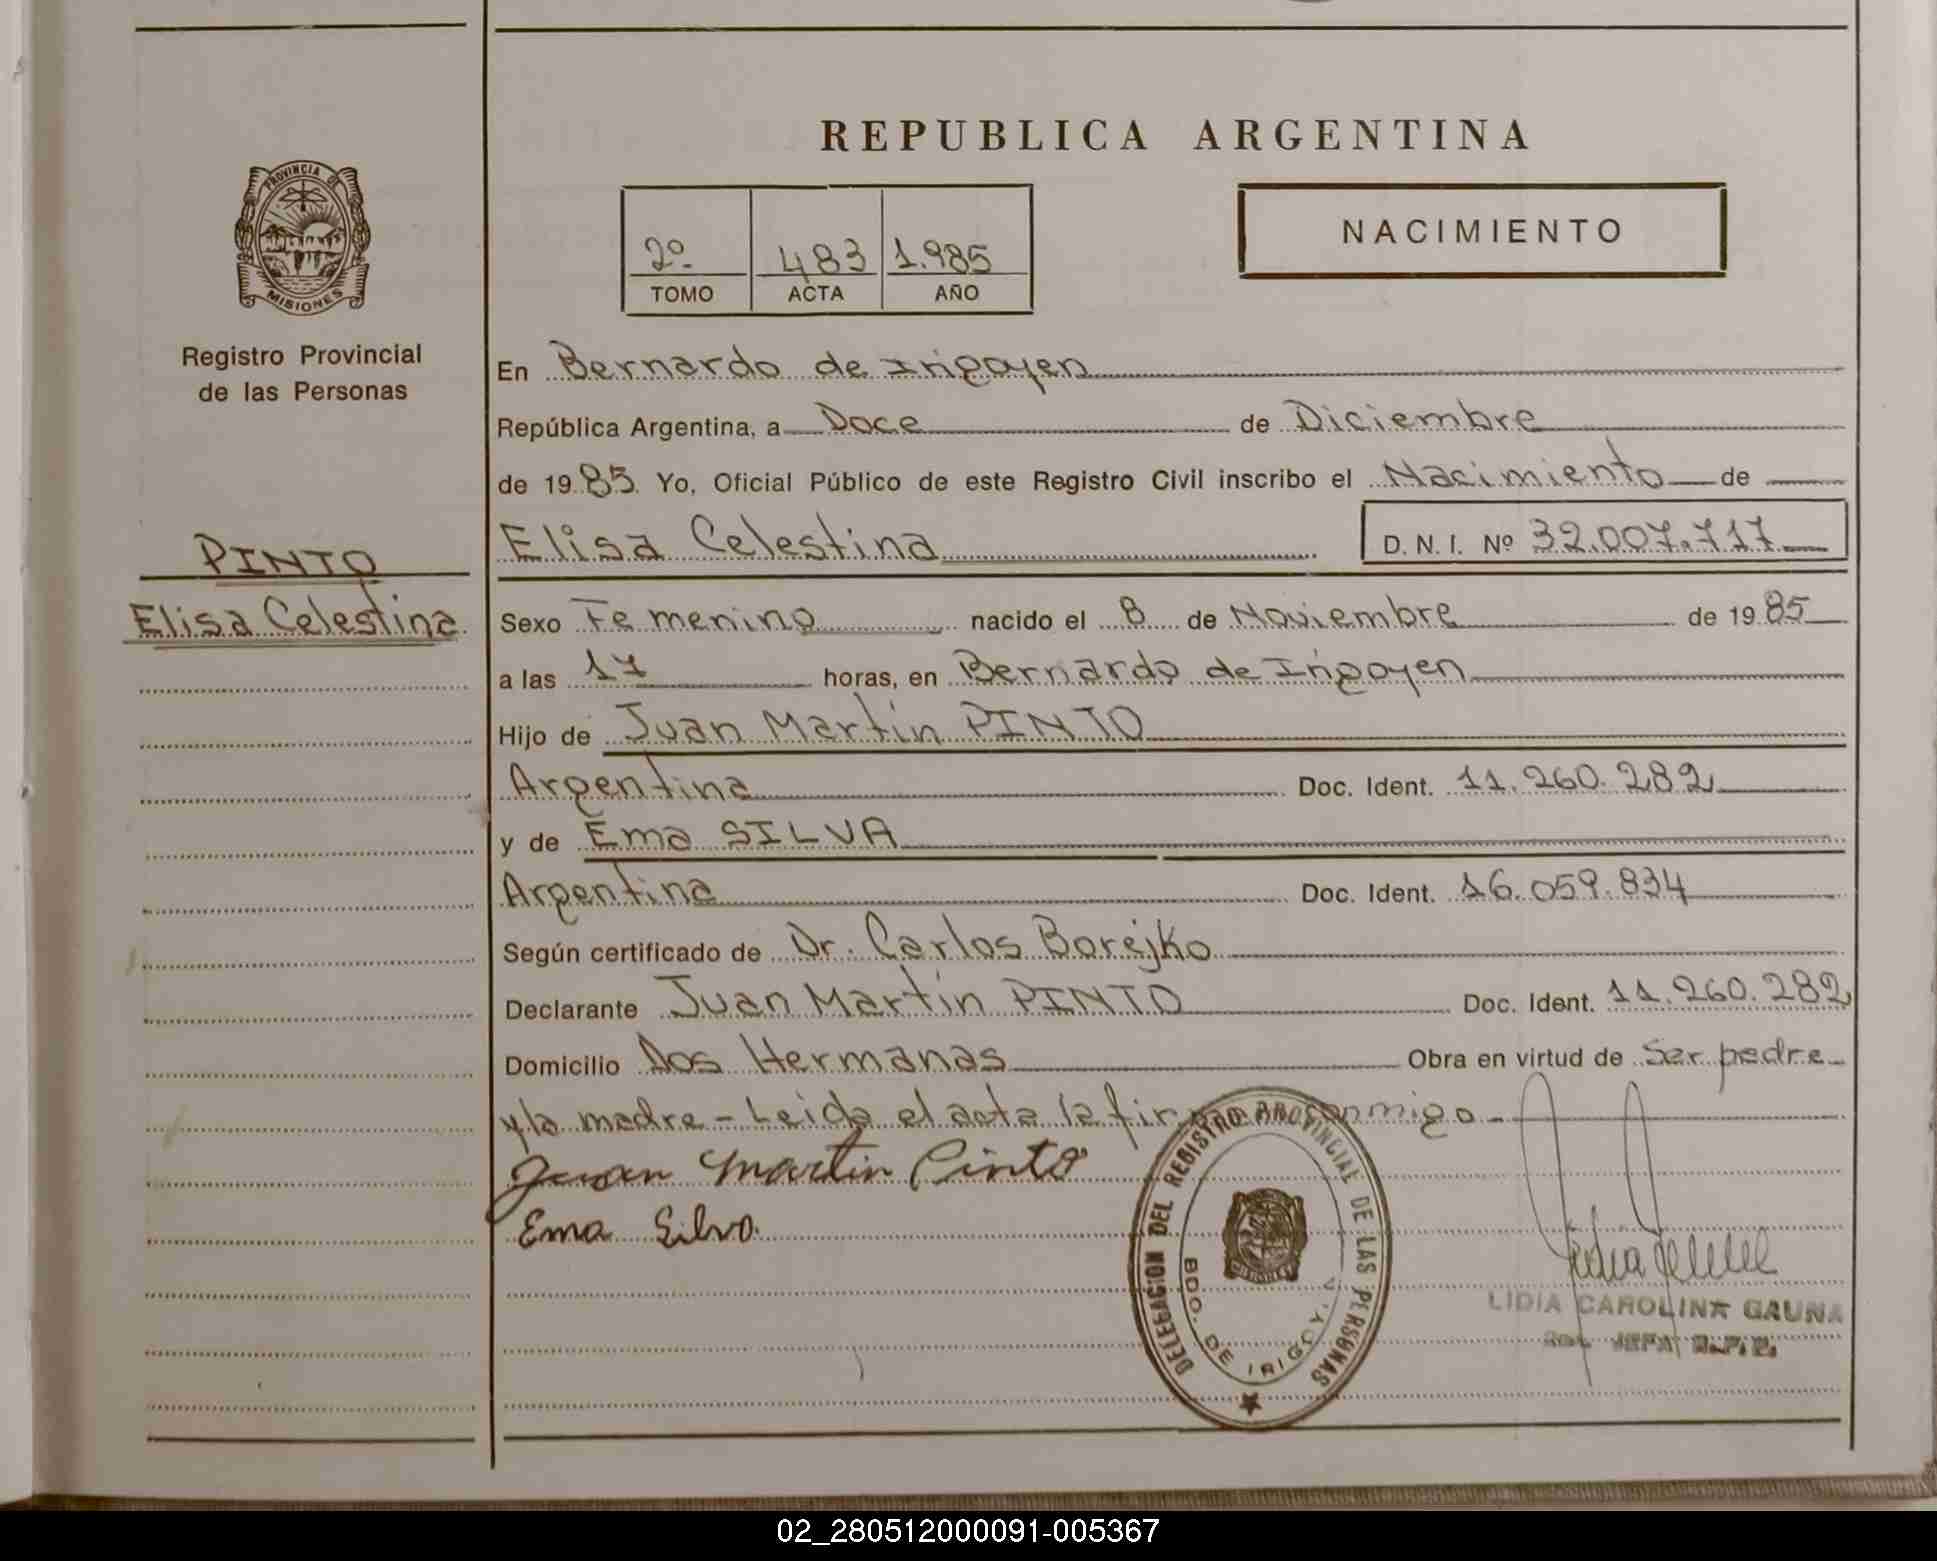 REPUBLICA ARGENTINA
PROVINCIA DE
MISIONES
Registro Provincial
de las Personas
PINTO
Elisa Celestina
2º 483 1.985
TOMO ACTA AÑO
NACIMIENTO
En Bernardo de Irigoyen
República Argentina, a Doce de Diciembre
de 1985 Yo, Oficial Público de este Registro Civil inscribo el Nacimiento de
Elisa Celestina D. N. I. Nº 32.007.717
Sexo Femenino nacido el 8 de Noviembre de 1985
a las 17 horas, en Bernardo de Irigoyen
Hijo de Juan Martín PINTO
Argentina Doc. Ident. 11.260.282
y de Ema SILVA
Argentina Doc. Ident. 16.059.834
Según certificado de Dr. Carlos Borejko
Declarante Juan Martín PINTO Doc. Ident. 11.260.282
Domicilio Dos Hermanas Obra en virtud de Ser padre
y la madre - Leida el acta la firman conmigo -
Juan Martin Pinto
Ema Silva
DELEGACION DEL REGISTRO PROVINCIAL DE LAS PERSONAS
BDO. DE IRIGOY.
LIDIA CAROLINA GAUNA
JEFA R.P.P.
02_280512000091-005367